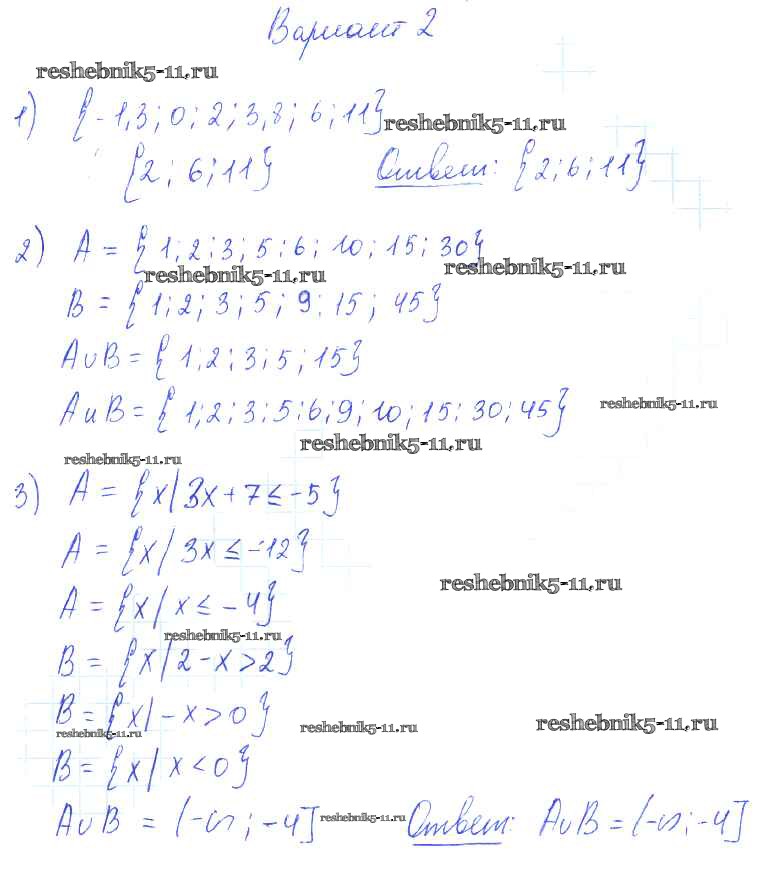 Вариант 2
reshebnik5-11.ru
1) {-1,3; 0; 2; 3,8; 6; 11}
reshebnik5-11.ru
{2; 6; 11} Ответ: {2; 6; 11}
2) A = {1; 2; 3; 5; 6; 10; 15; 30}
reshebnik5-11.ru reshebnik5-11.ru
B = {1; 2; 3; 5; 9; 15; 45}
A∪B = {1; 2; 3; 5; 15}
AиB = {1; 2; 3; 5; 6; 9; 10; 15; 30; 45}
reshebnik5-11.ru
reshebnik5-11.ru
reshebnik5-11.ru
3) A = {x/3x + 7 ≤ -5}
A = {x/3x ≤ -12}
reshebnik5-11.ru
A = {x/x ≤ -4}
reshebnik5-11.ru
B = {x/2-x > 2}
B = {x/-x > 0}
reshebnik5-11.ru reshebnik5-11.ru reshebnik5-11.ru
B = {x/x < 0}
A∪B = (-∞; -4] reshebnik5-11.ru Ответ: A∪B = (-∞; -4]